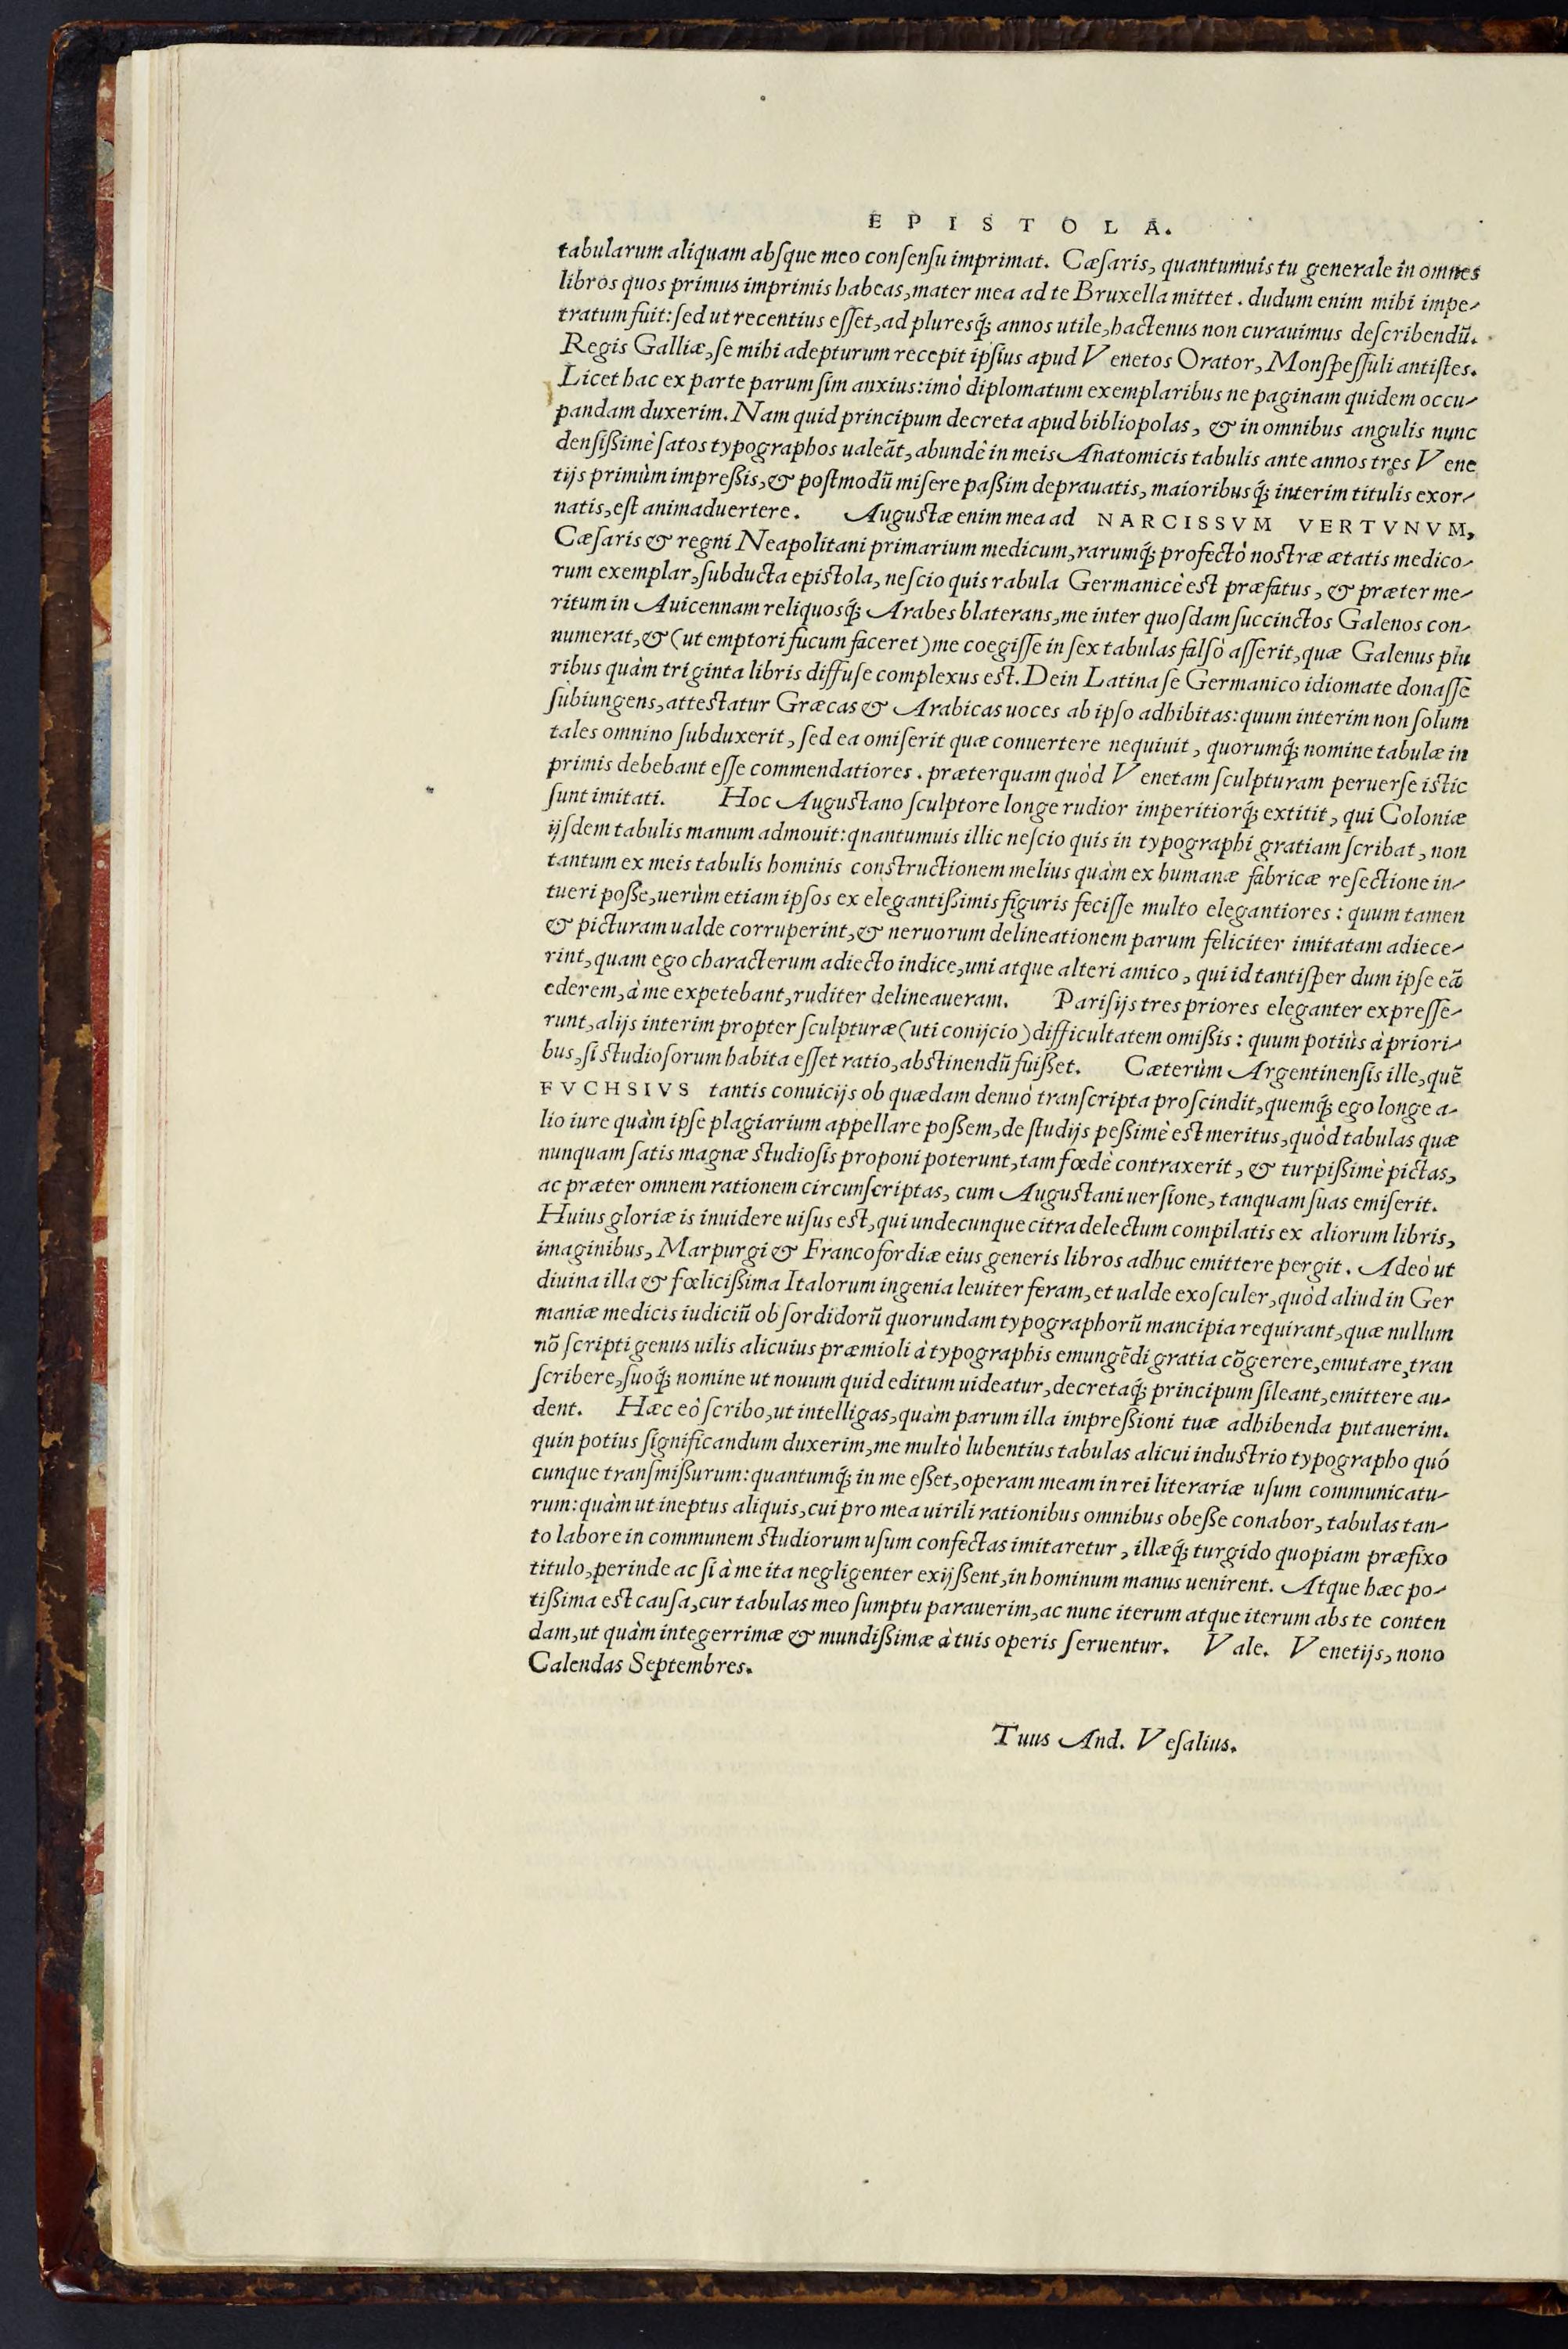 EPISTOLA.
tabularum aliquam abſque meo conſenſu imprimat. Cæſaris, quantumuis tu generale in omnes
libros quos primus imprimis habeas, mater mea ad te Bruxella mittet. dudum enim mihi impe-
tratum fuit: ſed ut recentius eſſet, ad pluresq́; annos utile, hactenus non curauimus deſcribendũ.
Regis Galliæ, ſe mihi adepturum recepit ipſius apud Venetos Orator, Monſpeſſuli antiſtes.
Licet hac ex parte parum ſim anxius: imò diplomatum exemplaribus ne paginam quidem occu-
pandam duxerim. Nam quid principum decreta apud bibliopolas, & in omnibus angulis nunc
denſißimè ſatos typographos ualeãt, abundè in meis Anatomicis tabulis ante annos tres Vene
tijs primùm impreßis, & poſtmodũ miſere paßim deprauatis, maioribusq́; interim titulis exor-
natis, eſt animaduertere. Auguſtæ enim mea ad NARCISSVM VERTVNVM,
Cæſaris & regni Neapolitani primarium medicum, rarumq́; profectò noſtræ ætatis medico-
rum exemplar, ſubducta epiſtola, neſcio quis rabula Germanicè eſt præfatus, & præter me-
ritum in Auicennam reliquosq́; Arabes blaterans, me inter quoſdam ſuccinctos Galenos con-
numerat, & (ut emptori fucum faceret) me coegiſſe in ſex tabulas falſò aſſerit, quæ Galenus plu
ribus quàm triginta libris diffuſe complexus eſt. Dein Latina ſe Germanico idiomate donaſſe
ſubiungens, atteſtatur Græcas & Arabicas uoces ab ipſo adhibitas: quum interim non ſolum
tales omnino ſubduxerit, ſed ea omiſerit quæ conuertere nequiuit, quorumq́; nomine tabulæ in
primis debebant eſſe commendatiores. præterquam quòd Venetam ſculpturam peruerſe iſtic
ſunt imitati. Hoc Auguſtano ſculptore longe rudior imperitiorq́; extitit, qui Coloniæ
ijſdem tabulis manum admouit: qnantumuis illic neſcio quis in typographi gratiam ſcribat, non
tantum ex meis tabulis hominis conſtructionem melius quàm ex humanæ fabricæ reſectione in-
tueri poße, uerùm etiam ipſos ex elegantißimis figuris feciſſe multo elegantiores: quum tamen
& picturam ualde corruperint, & neruorum delineationem parum feliciter imitatam adiece-
rint, quam ego characterum adiecto indice, uni atque alteri amico, qui id tantiſper dum ipſe eã
ederem, à me expetebant, ruditer delineaueram. Pariſijs tres priores eleganter expreſſe-
runt, alijs interim propter ſculpturæ (uti conijcio) difficultatem omißis: quum potiùs à priori-
bus, ſi ſtudioſorum habita eſſet ratio, abſtinendũ fuißet. Cæterùm Argentinenſis ille, quẽ
FVCHSIVS tantis conuicijs ob quædam denuò tranſcripta proſcindit, quemq́; ego longe a-
lio iure quàm ipſe plagiarium appellare poßem, de ſtudijs peßimè eſt meritus, quòd tabulas quæ
nunquam ſatis magnæ ſtudioſis proponi poterunt, tam fœdè contraxerit, & turpißimè pictas,
ac præter omnem rationem circunſcriptas, cum Auguſtani uerſione, tanquam ſuas emiſerit.
Huius gloriæ is inuidere uiſus eſt, qui undecunque citra delectum compilatis ex aliorum libris,
imaginibus, Marpurgi & Francofordiæ eius generis libros adhuc emittere pergit. Adeò ut
diuina illa & fœlicißima Italorum ingenia leuiter feram, et ualde exoſculer, quòd aliud in Ger
maniæ medicis iudiciũ ob ſordidorũ quorundam typographorũ mancipia requirant, quæ nullum
nõ ſcripti genus uilis alicuius præmioli à typographis emungẽdi gratia cõgerere, emutare, tran
ſcribere, ſuoq́; nomine ut nouum quid editum uideatur, decretaq́; principum ſileant, emittere au-
dent. Hæc eò ſcribo, ut intelligas, quàm parum illa impreßioni tuæ adhibenda putauerim.
quin potius ſignificandum duxerim, me multò lubentius tabulas alicui induſtrio typographo quó
cunque tranſmißurum: quantumq́; in me eßet, operam meam in rei literariæ uſum communicatu-
rum: quàm ut ineptus aliquis, cui pro mea uirili rationibus omnibus obeße conabor, tabulas tan-
to labore in communem ſtudiorum uſum confectas imitaretur, illæq́; turgido quopiam præfixo
titulo, perinde ac ſi à me ita negligenter exijßent, in hominum manus uenirent. Atque hæc po-
tißima eſt cauſa, cur tabulas meo ſumptu parauerim, ac nunc iterum atque iterum abs te conten
dam, ut quàm integerrimæ & mundißimæ à tuis operis ſeruentur. Vale. Venetijs, nono
Calendas Septembres.
Tuus And. Veſalius.